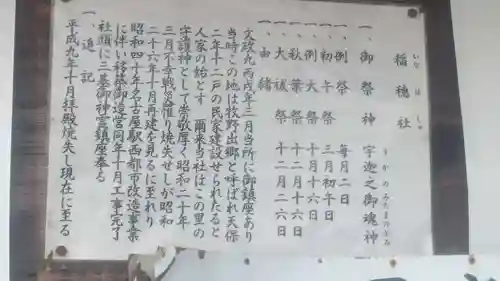 稲穂社
いなほしゃ
一、御祭神 宇迦之御魂神
うかのみたまのかみ
一、例祭 毎月二日
一、初午祭 三月初午日
一、例大祭 十月十六日
一、秋葉祭 十二月十六日
一、大祓祭 十二月二六日
一、由緒
文政九丙戌年三月当所に御鎮座あり
当時この地は牧野出郷と呼ばれ天保
二年十二戸の民家建設せられたると
人家の始とす 爾来当社はこの里の
守護神として崇敬厚く昭和二十年
三月不幸戦災に罹り焼失せしが昭和
二十六年十月再建を見るに至れり
昭和四十年名古屋駅西都市改造事業
に伴い移築御造営同年十月工事完了
社頭に三墓御神霊鎮座奉る
一、追記
平成九年十月拝殿焼失し現在に至る